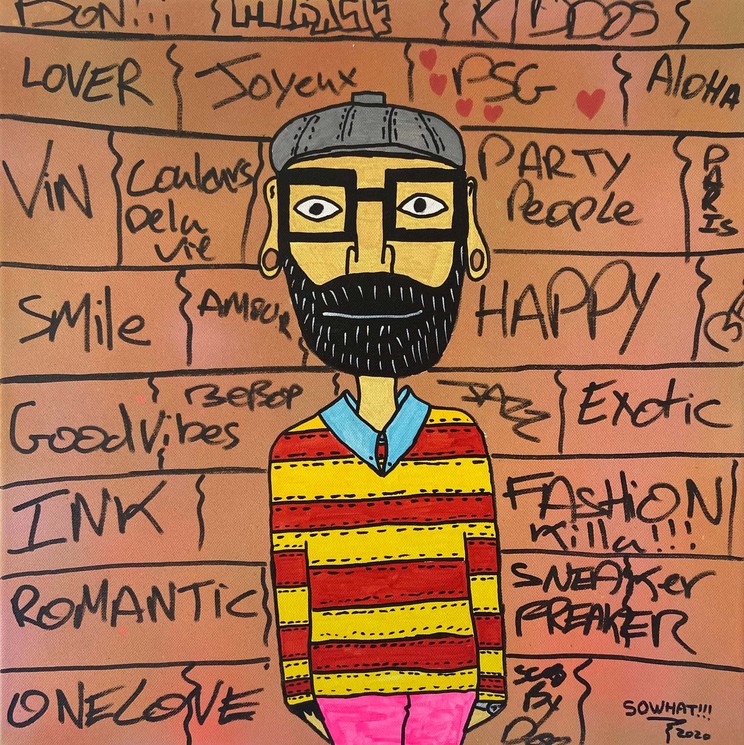 BON!!!
KIDDOS
LOVER
Joyeux
PSG
AlOHA
ViN
Couleurs
De la
vie
PARTY
People
PARIS
SMile
AMOUR
HAPPY
Good Vibes
BeBop
JAZZ
Exotic
INK
FASHiON
Killa!!!
ROMANTiC
SNEAKer
FREAKER
ONE LOVE
By
SOWHAT!!!
2020